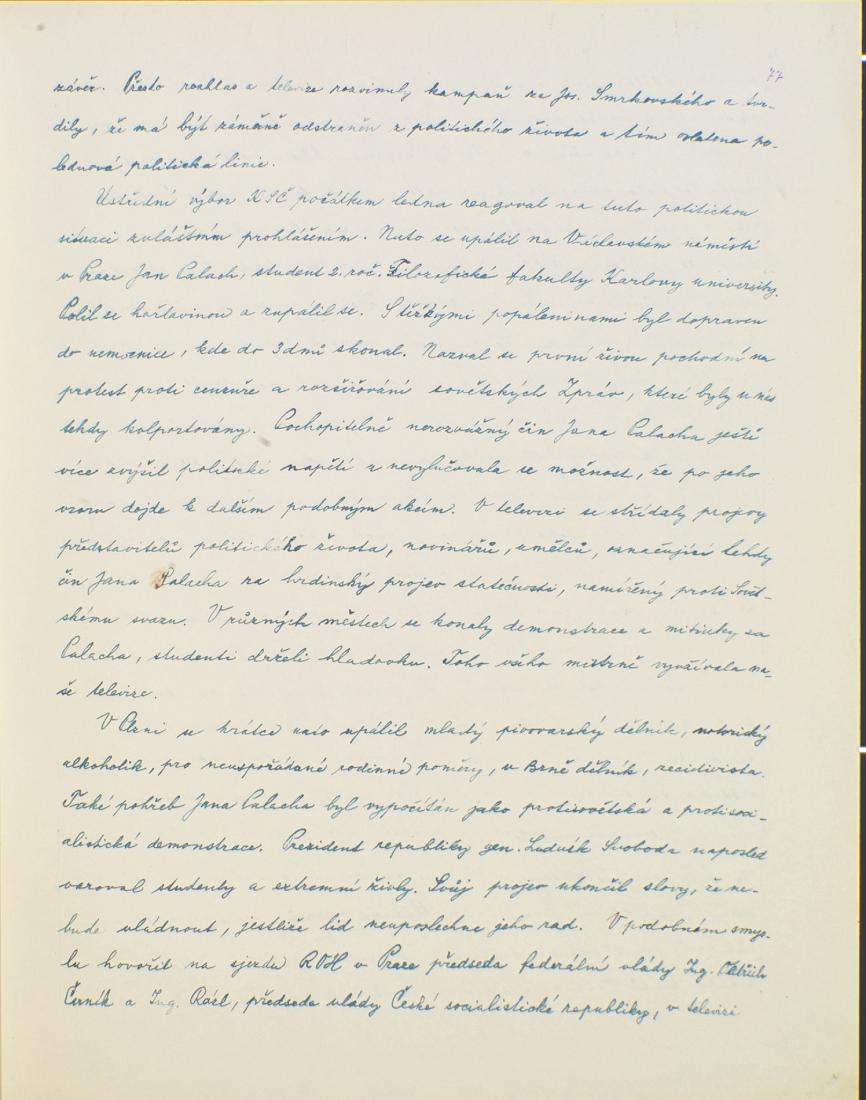 77
závěr. Přesto rozhlas a televize rozvinuly kampaň za Jos. Smrkovského a tvr-
dily, že má být záměrně odstraněn z politického života a tím vlatena po-
lednová politická linie.
Ústřední výbor KSČ počátkem ledna reagoval na tuto politickou
situaci zvláštním prohlášením. Nato se upálil na Václavském náměstí
v Praze Jan Palach, student 2. roč. Filozofické fakulty Karlovy university.
Polil se hořlavinou a zapálil se. S těžkými popáleninami byl dopraven
do nemocnice, kde do 3 dnů skonal. Nazval se první živou pochodní na
protest proti cenzuře a rozšiřování sovětských Zpráv, které byly u nás
tehdy kolportovány. Pochopitelně nerozvážný čin Jana Palacha ještě
více zvýšil politické napětí a nevylučovala se možnost, že po jeho
vzoru dojde k dalším podobným akcím. V televizi se střídaly projevy
představitelů politického života, novinářů, umělců, označující tehdy
čin Jana Palacha za hrdinský projev statečnosti, namířený proti Sovět-
skému svazu. V různých městech se konaly demonstrace a mitinky za
Palacha, studenti drželi hladovku. Toho všeho mistrně využívala na-
še televize.
V Plzni se krátce nato upálil mladý pivovarský dělník, notorický
alkoholik, pro neuspořádané rodinné poměry, v Brně dělník, recidivista.
Také pohřeb Jana Palacha byl vypočítán jako protisovětská a protisoci-
alistická demonstrace. Prezident republiky gen. Ludvík Svoboda naposled
varoval studenty a extremní živly. Svůj projev ukončil slovy, že ne-
bude vládnout, jestliže lid neuposlechne jeho rad. V podobném smys-
lu hovořil na sjezdu ROH v Praze předseda federální vlády Ing. Oldřich
Černík a Ing. Rázl, předseda vlády České socialistické republiky, v televizi